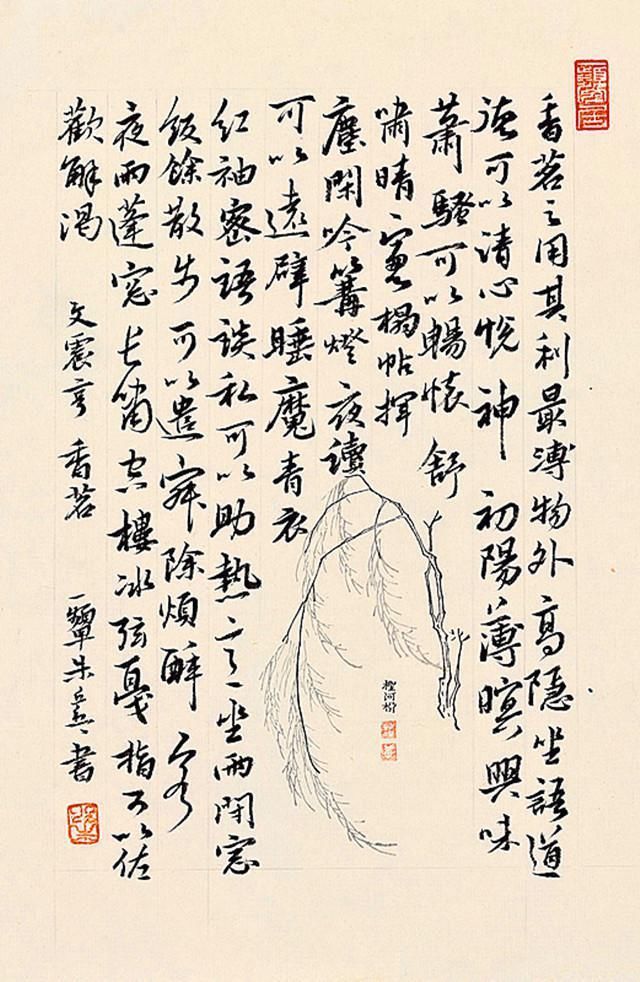 香茗之用其利最溥物外高隱坐語道
德可以清心悅神初陽薄暝興味
蕭騷可以暢懷舒
嘯晴窗榻帖揮
麈閑吟篝燈夜讀
可以遠辟睡魔青衣
紅袖密語談私可以助熱意坐雨閉窓
飯餘散步可以遣寂除煩醉客
夜雨蓬窓長嘯空樓冰弦戛指可以佐
歡解渴 文震亨 香茗 朱 書
檉河柳